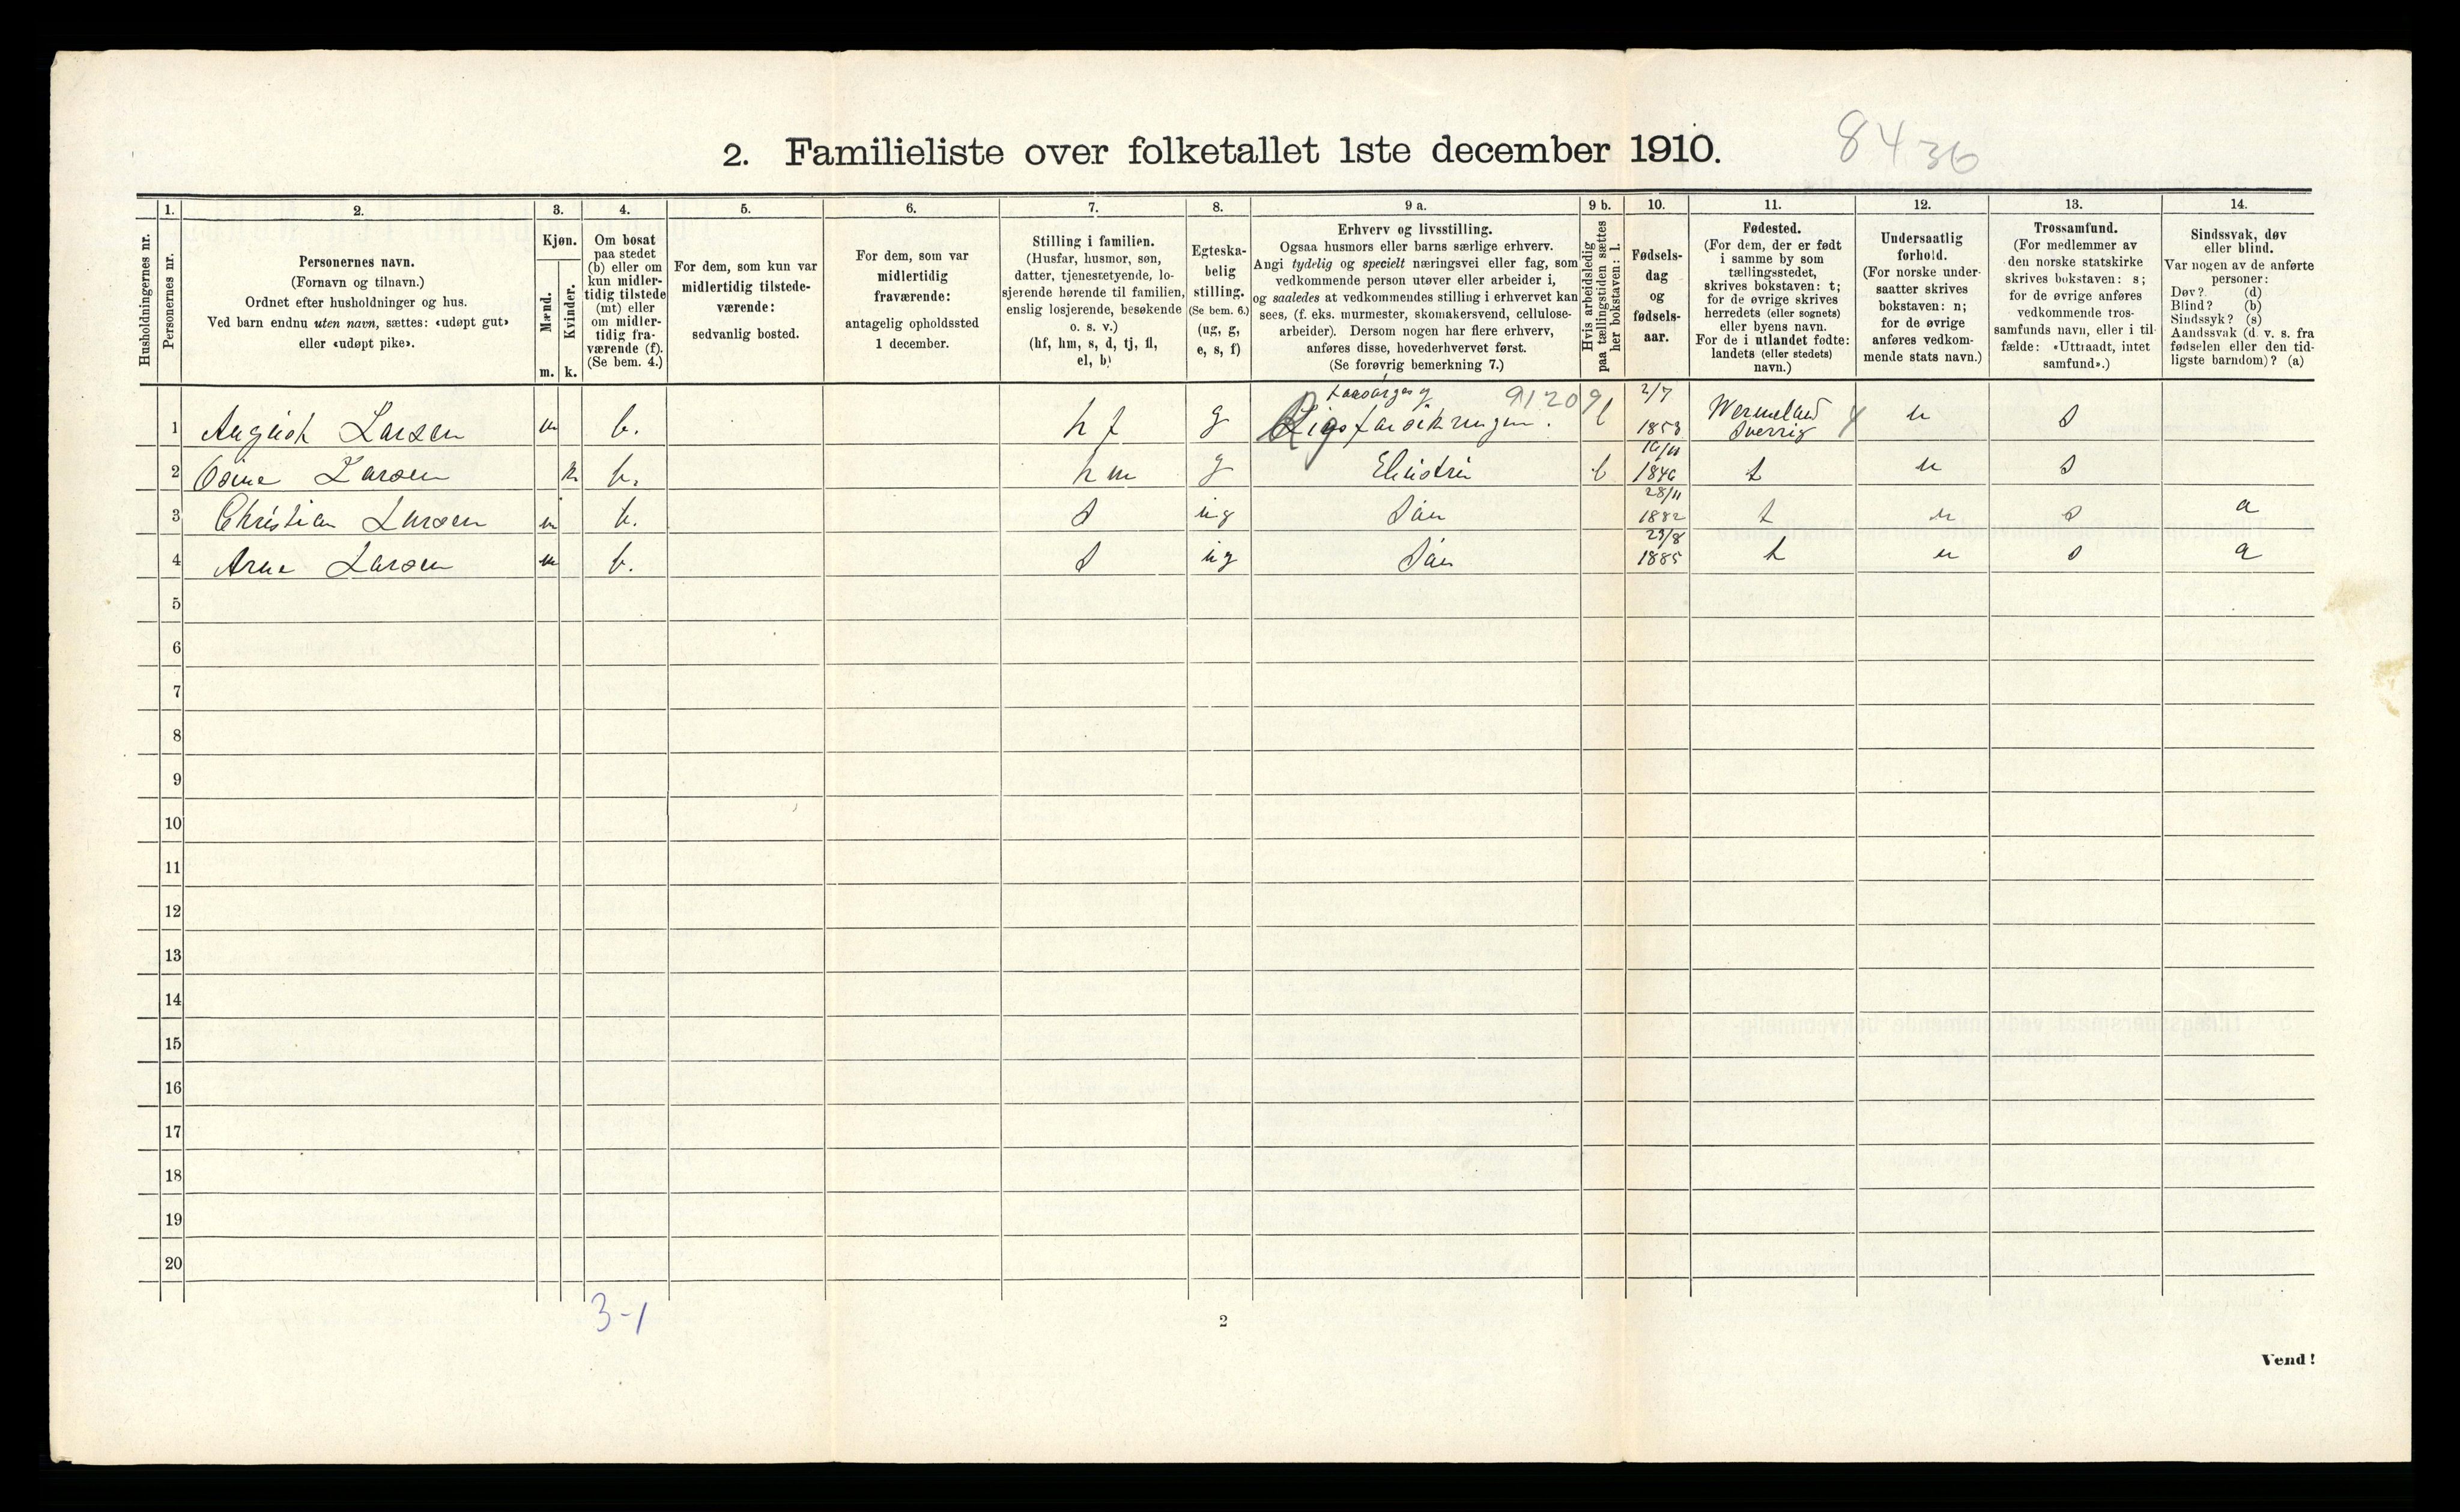 2. Familieliste over folketallet 1ste december 1910.
8436
Husholdningernes nr.
1.
Personernes nr.
2.
Personernes navn.
(Fornavn og tilnavn.)
Ordnet efter husholdninger og hus.
Ved barn endnu uten navn, sættes: «udøpt gut»
eller «udøpt pike».
3.
Kjøn.
Mænd.
Kvinder.
m. k.
4.
Om bosat
paa stedet
(b) eller om
kun midler-
tidig tilstede
(mt) eller
om midler-
tidig fra-
værende (f).
(Se bem. 4.)
5.
For dem, som kun var
midlertidig tilstede-
værende:
sedvanlig bosted.
6.
For dem, som var
midlertidig
fraværende:
antagelig opholdssted
1 december.
7.
Stilling i familien.
(Husfar, husmor, søn,
datter, tjenestetyende, lo-
sjerende hørende til familien,
enslig losjerende, besøkende
o. s. v.)
(hf, hm, s, d, tj, fl,
el, b)
8.
Egteska-
belig
stilling.
(Se bem. 6.)
(ug, g,
e, s, f)
9 a.
Erhverv og livsstilling.
Ogsaa husmors eller barns særlige erhverv.
Angi tydelig og specielt næringsvei eller fag, som
vedkommende person utøver eller arbeider i,
og saaledes at vedkommendes stilling i erhvervet kan
sees, (f. eks. murmester, skomakersvend, cellulose-
arbeider). Dersom nogen har flere erhverv,
anføres disse, hovederhvervet først.
(Se forøvrig bemerkning 7.)
9 b.
Hvis arbeidsledig
paa tællingstiden sættes
her bokstaven: l.
10.
Fødsels-
dag
og
fødsels-
aar.
11.
Fødested.
(For dem, der er født
i samme by som
tællingsstedet,
skrives bokstaven: t;
for de øvrige skrives
herredets (eller sognets)
eller byens navn.
For de i utlandet fødte:
landets (eller stedets)
navn.)
12.
Undersaatlig
forhold.
(For norske under-
saatter skrives
bokstaven: n;
for de øvrige
anføres vedkom-
mende stats navn.)
13.
Trossamfund.
(For medlemmer av
den norske statskirke
skrives bokstaven: s;
for de øvrige anføres
vedkommende tros-
samfunds navn, eller i til-
fælde: «Uttraadt, intet
samfund».)
14.
Sindssvak, døv
eller blind.
Var nogen av de anførte
personer:
Døv? (d)
Blind? (b)
Sindssyk? (s)
Aandssvak (d. v. s. fra
fødselen eller den tid-
ligste barndom)? (a)
91209 2/7
1 August Larsen m b. hf g l 1853 Wermeland Sverrig n s
2 Osine Larsen k b. hm g l 1846 t n s
28/11
3 Christian Larsen m b. s ug Søn 1882 t n s a
29/8
4 Arne Larsen m b. s ug Søn 1885 t n s a
5
6
7
8
9
10
11
12
13
14
15
16
17
18
19
20
3-1
2
Vend!